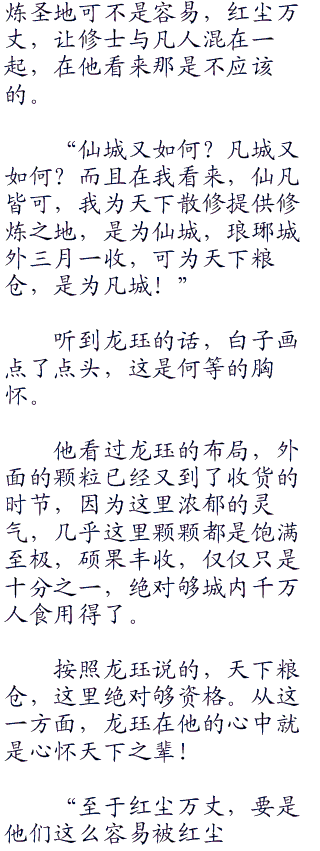 炼圣地可不是容易，红尘万
丈，让修士与凡人混在一
起，在他看来那是不应该
的。
“仙城又如何？凡城又
如何？而且在我看来，仙凡
皆可，我为天下散修提供修
炼之地，是为仙城，琅琊城
外三月一收，可为天下粮
仓，是为凡城！”
听到龙珏的话，白子画
点了点头，这是何等的胸
怀。
他看过龙珏的布局，外
面的颗粒已经又到了收货的
时节，因为这里浓郁的灵
气，几乎这里颗颗都是饱满
至极，硕果丰收，仅仅只是
十分之一，绝对够城内千万
人食用得了。
按照龙珏说的，天下粮
仓，这里绝对够资格。从这
一方面，龙珏在他的心中就
是心怀天下之辈！
“至于红尘万丈，要是
他们这么容易被红尘